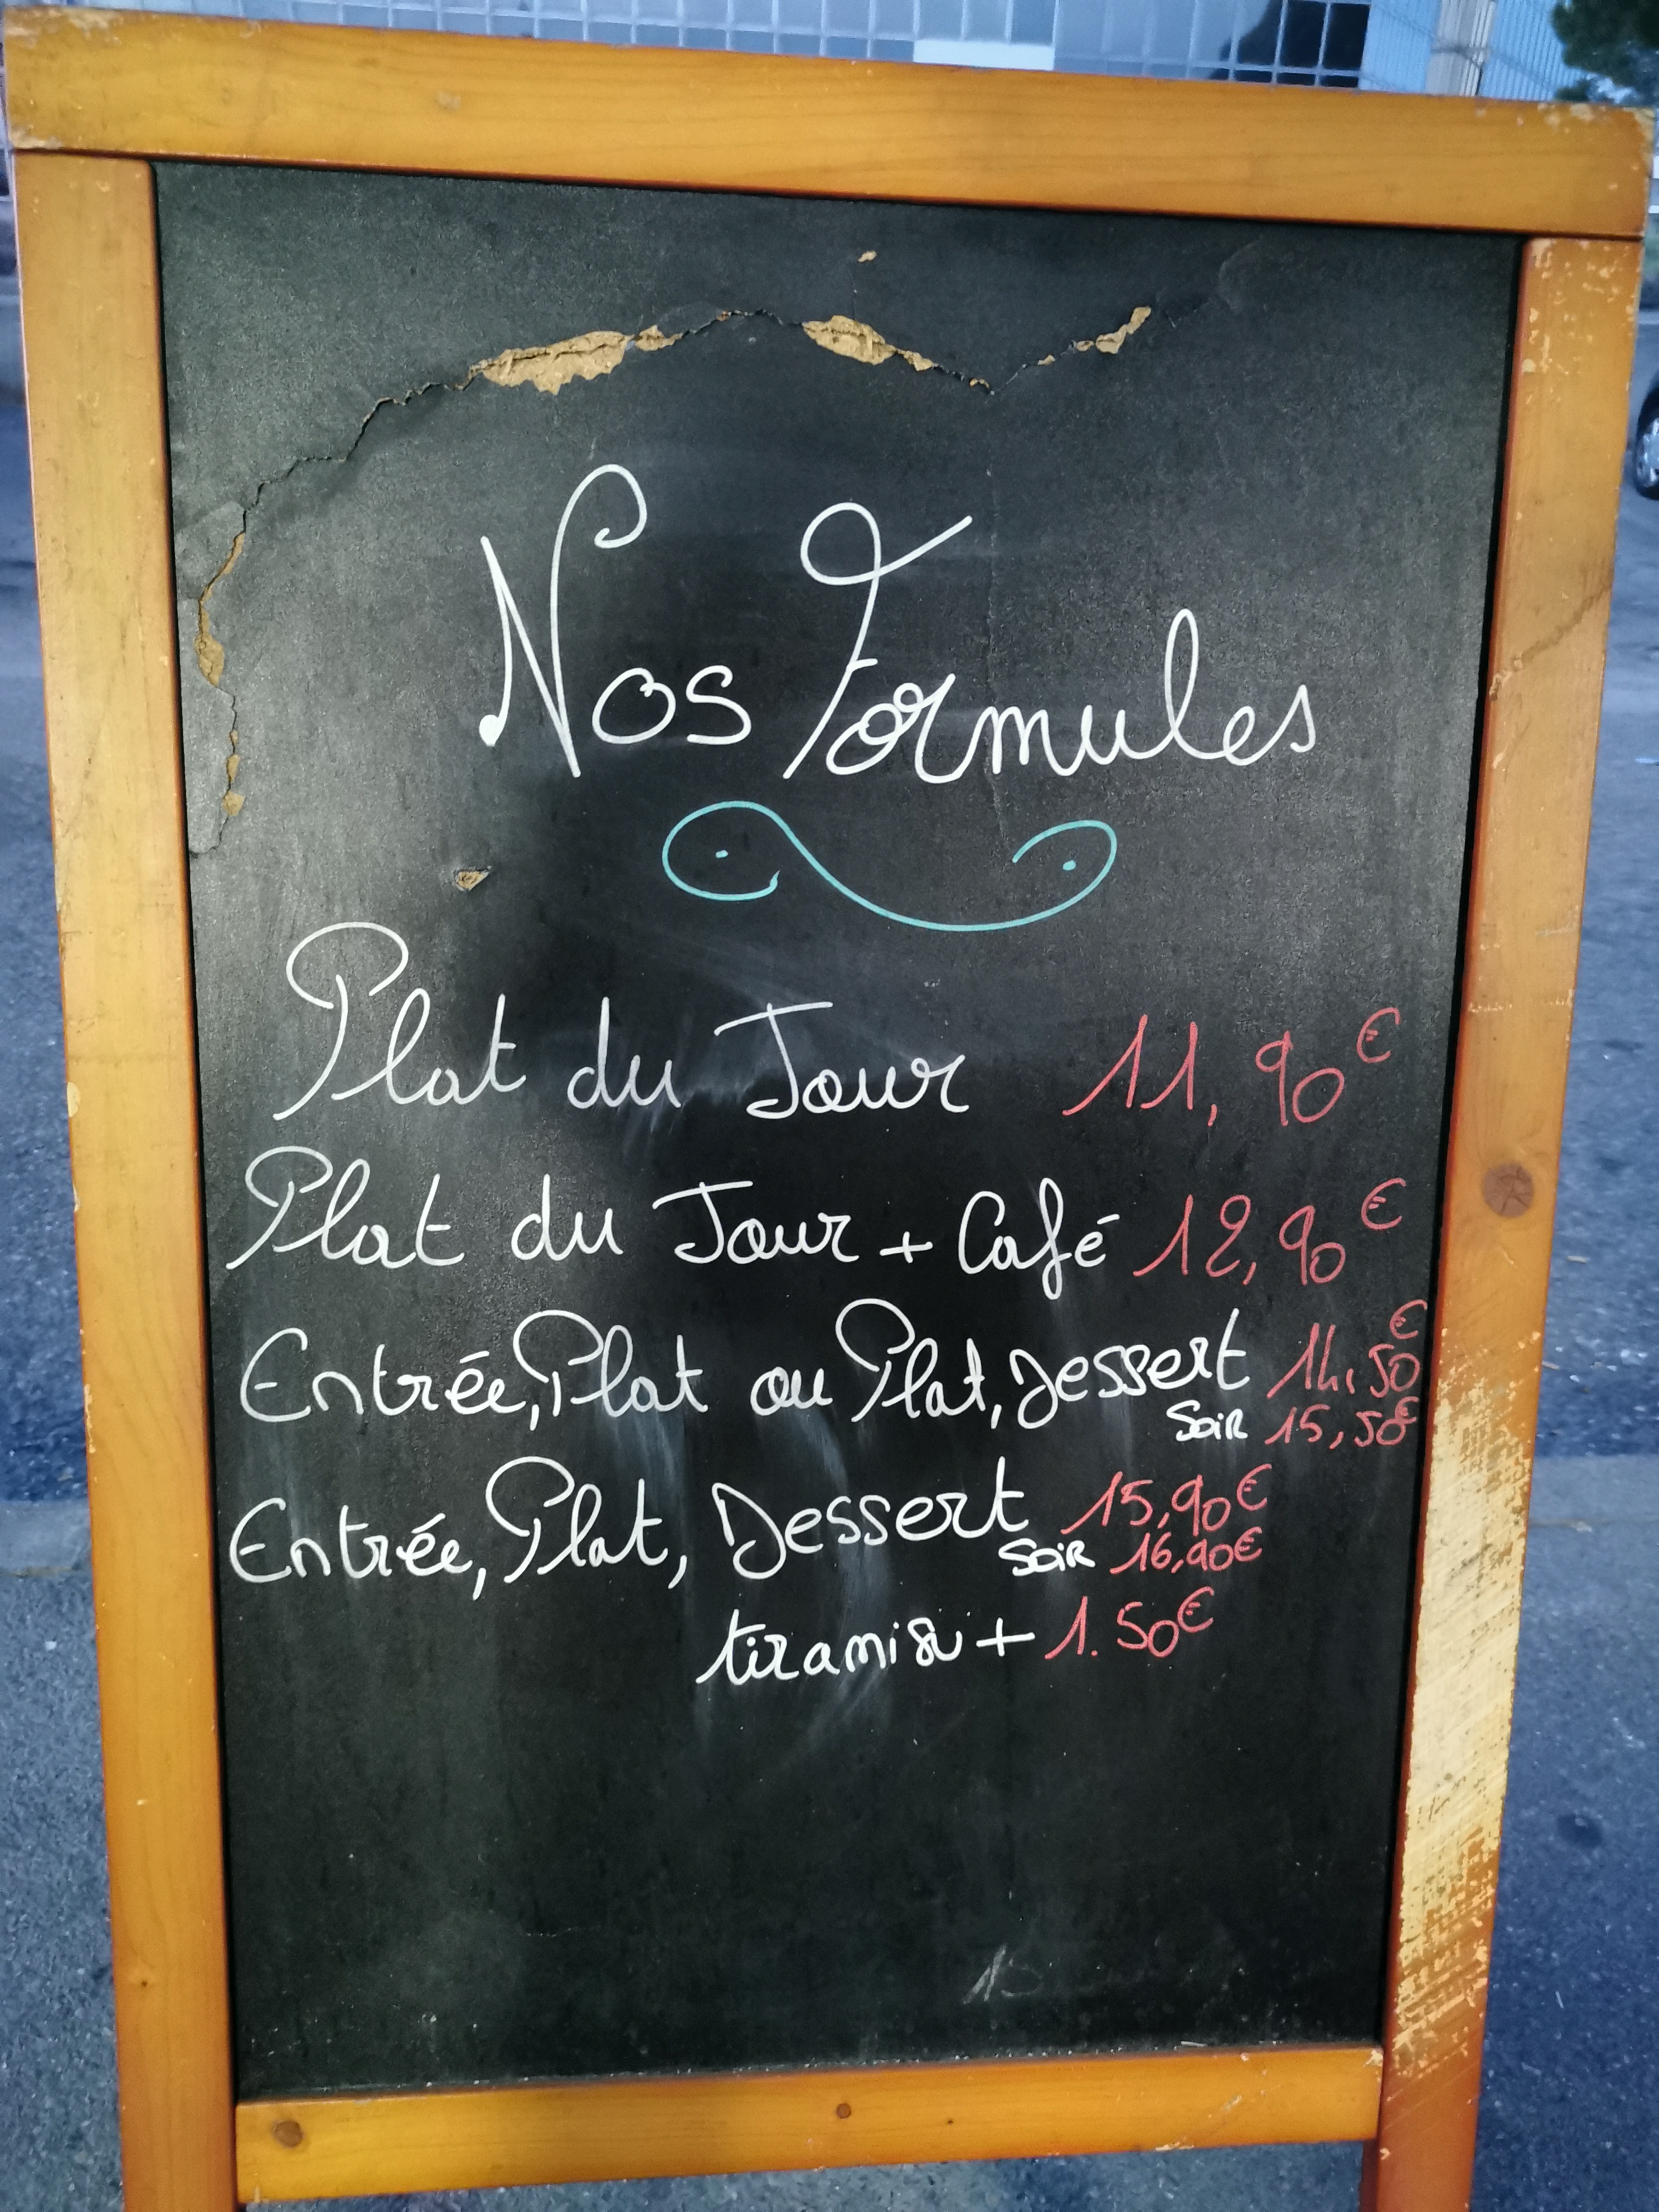 Nos Formules
Plat du Jour 11,90€
Plat du Jour + Café 12,90€
Entrée, Plat ou Plat, Dessert 14,50€
Soir 15,50€
Entrée, Plat, Dessert 15,90€
Soir 16,90€
tiramisu + 1.50€